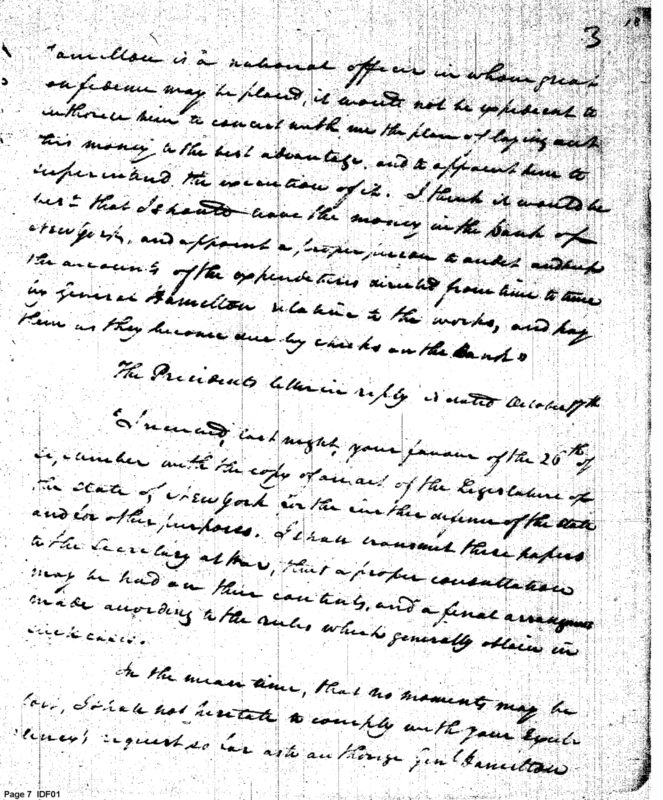 3
18
"amilton is a national officer in whom great
onfidence may be placed, it would not be expedient to
authorise him to concert with me the plan of laying out
this money to the best advantage, and to appoint him to
superintend the execution of it. I think it would be
best that I should leave the money in the bank of
New York, and appoint a proper person to audit and keep
the accounts of the expenditures directed from time to time
by General Hamilton relative to the works, and pay
them as they become due by checks on the Bank"
The Presidents letter in reply is dated October 17th
"I received, last night, your favour of the 26th of
with the copy of an act of the Legislature of
the state of New York for the further defence of the state
and for other purposes. I shall transmit these papers
to the Secretary at War, that a proper consultation
may be had on their contents, and a final arrangement
made according to the rules which generally obtain in
such cases.
In the mean time, that no moments may be
lost, I shall not hesitate to comply with your Excel-
lency's request so far as to authorize Genl Hamilton
Page 7 IDF01